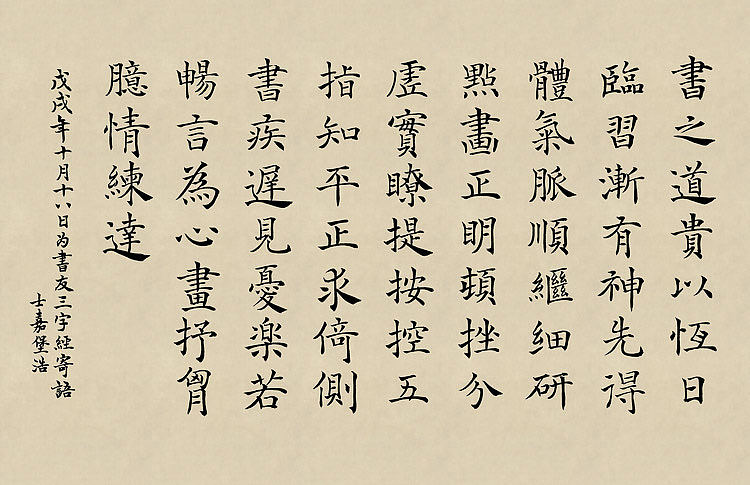 書之道貴以恆日
臨習漸有神先得
體氣脈順繼細研
點畫正明頓挫分
虛實瞭提按控五
指知平正求倚側
書疾遲見憂楽若
暢言為心畫抒胷
臆情練達
戊戌年十月十八日为書友三字經寄語
士嘉堡浩